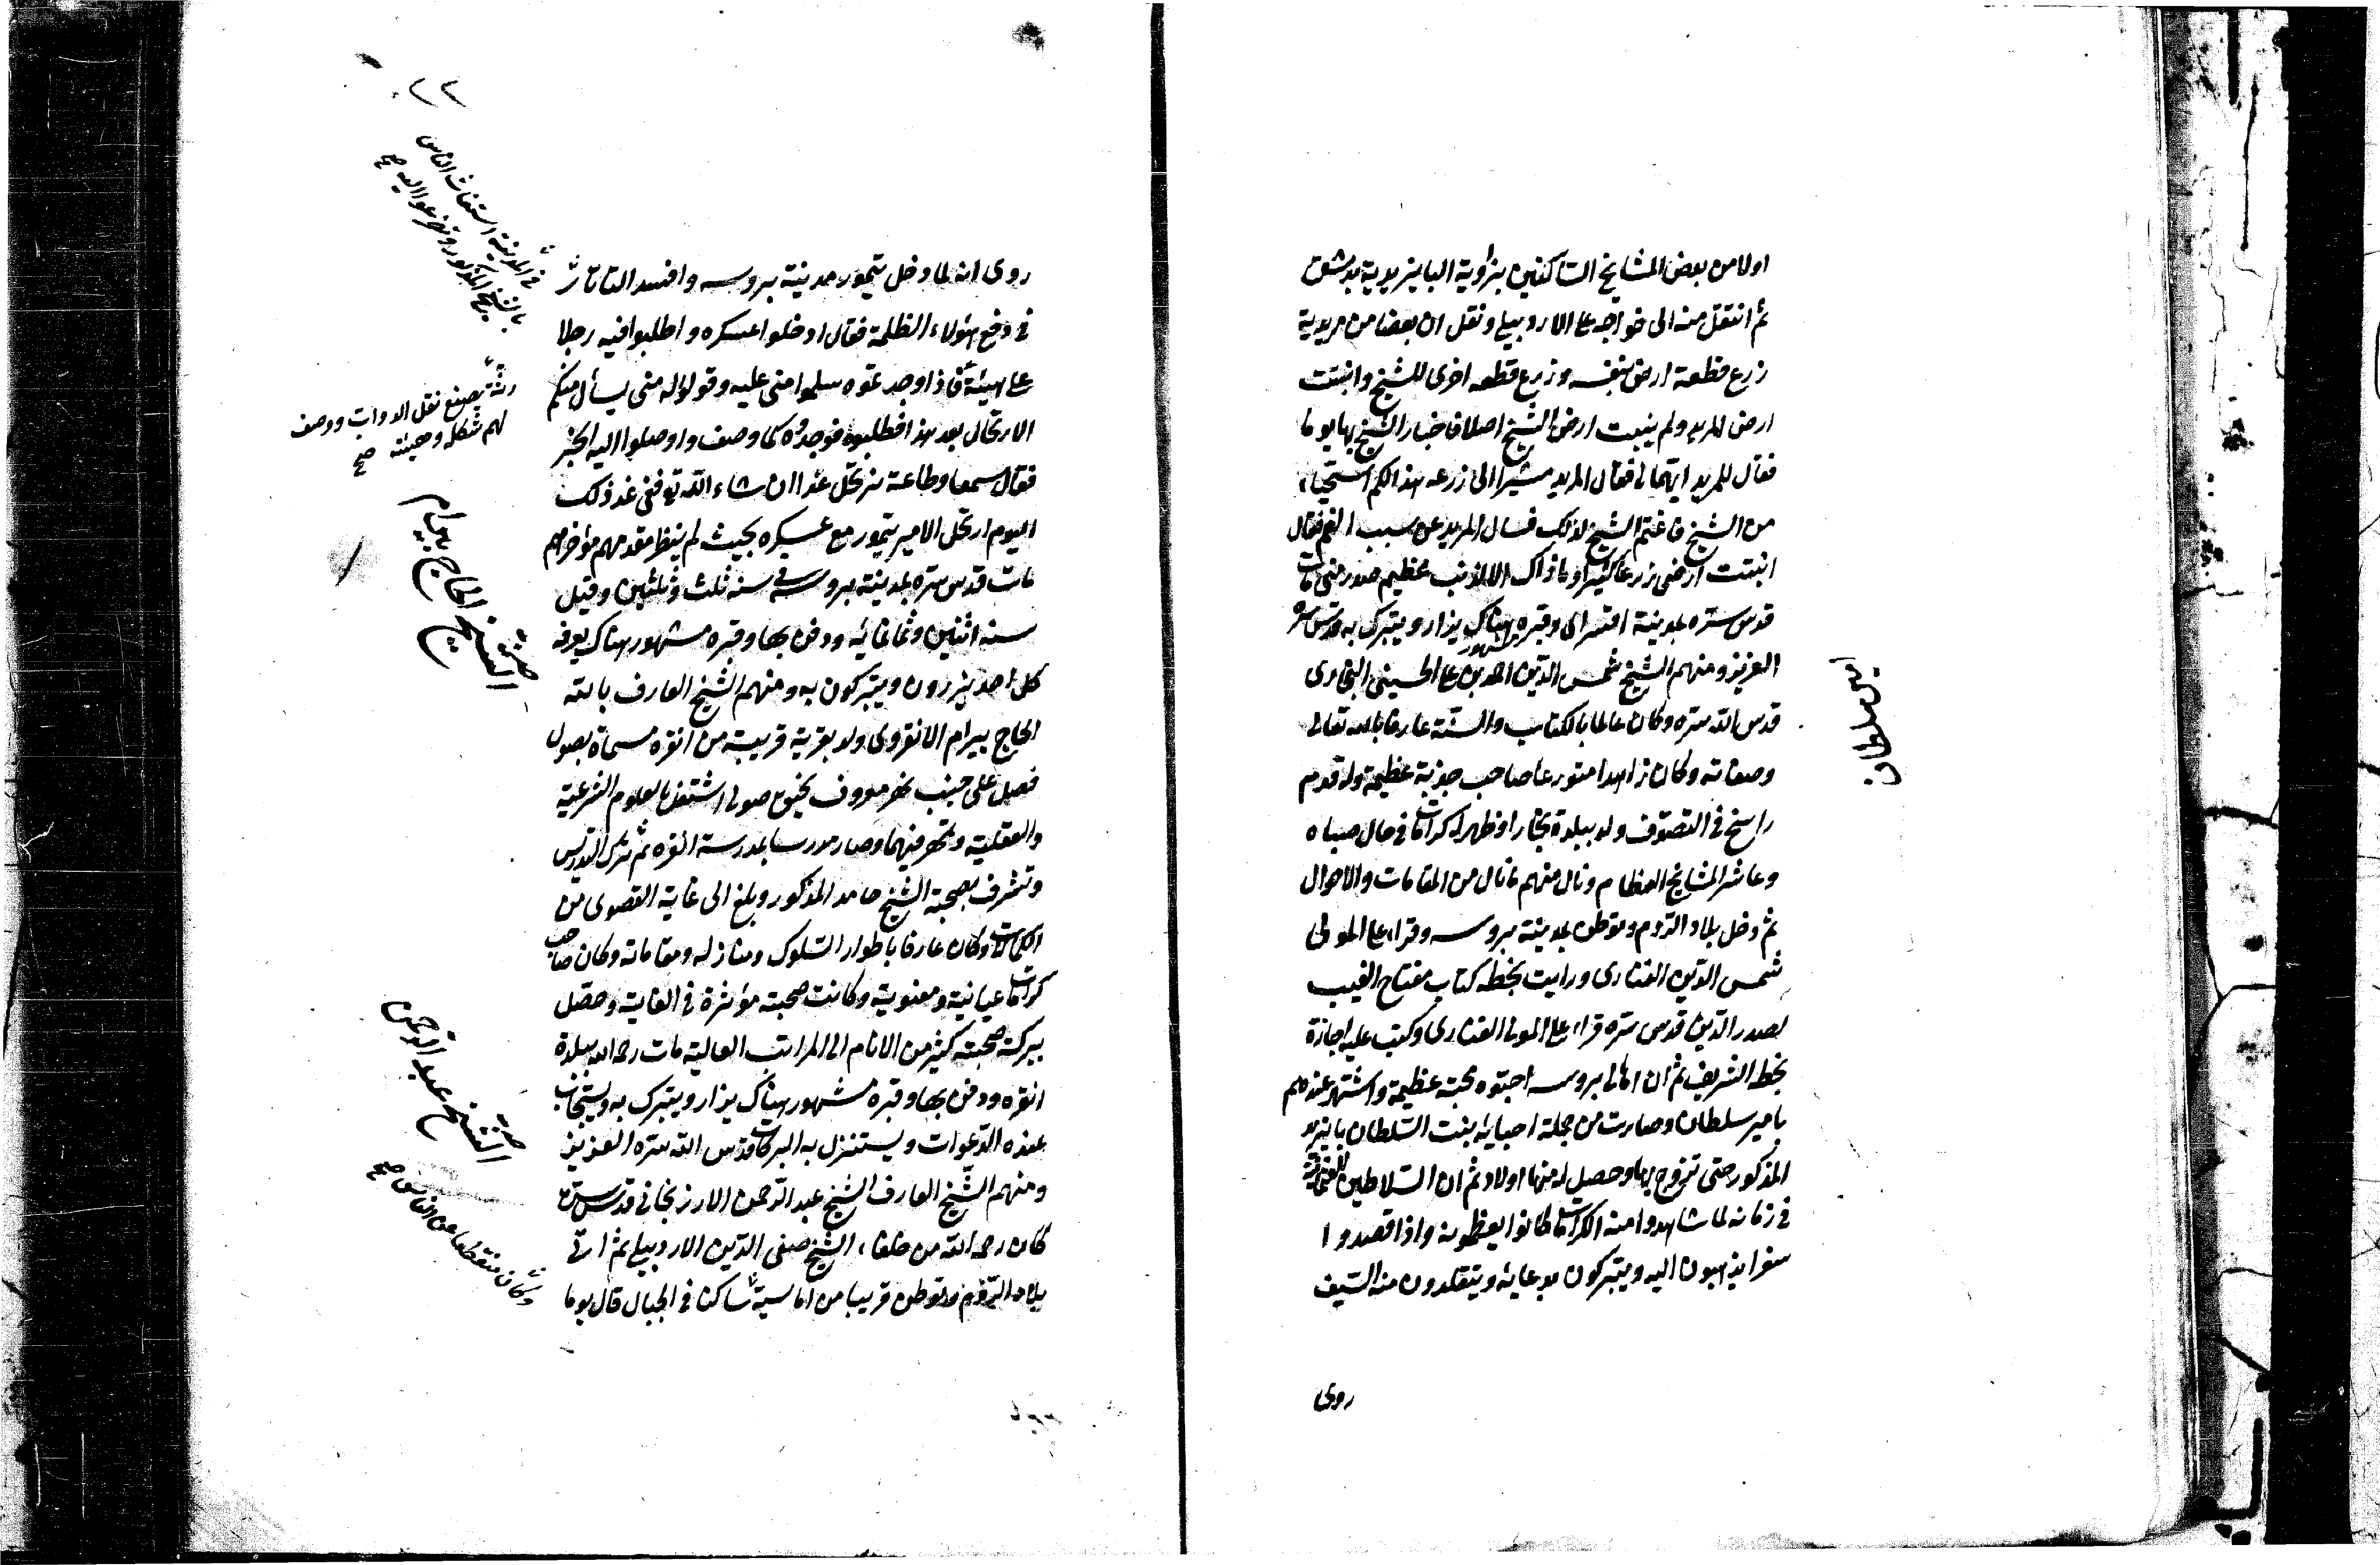 اولا من بعض المشايخ الساكنين بزاوية البايزيدية بدمشق
ثم انتقل منه الى خواجه على الاردبيلى ونقل ان بعضا من مريديه
زرع قطعة ارض بنفسه وزرع قطعه اخرى للشيخ وانبتت
ارض المريد ولم ينبت ارض الشيخ اصلا فاخبار الشيخ بها يوما
فقال للمريد ايتهما لى فقال المريد مشيرا الى زرعه هذا لكم استحياء
من الشيخ فاغتم الشيخ لذلك فسال المريد عن سبب الغم فقال
انبتت ارضى زرعا كثيرا وما ذاك الا لذنب عظيم صدر منى مات
قدس سره بمدينة اقسراى وقبره مشهور هناك يزار ويتبرك به قدس سره
العزيز ومنهم الشيخ شمس الدين احمد بن على الحسينى البخارى
قدس الله سره وكان عالما بالكتاب والسنة عارفا بالله تعالى
وصفاته وكان زاهدا متورعا صاحب جذبة عظيمة وله قدم
راسخ فى التصوف ولد ببلدة بخارا وظهر له كرامات فى حال صباه
وعاشر المشايخ العظام ونال منهم ما نال من المقامات والاحوال
ثم دخل بلاد الروم وتوطن بمدينة بروسه وقراء على المولى
شمس الدين الفنارى ورايت بخطه كتاب مفتاح الغيب
لصدر الدين قدس سره قراء على المولى الفنارى وكتب عليه اجازة
بخطه الشريف ثم ان اهالى بروسه احبوه محبة عظيمة واشتهر عندهم
بامير سلطان وصارت من جملة احبائه بنت السلطان بايزيد
المذكور حتى تزوج بها وحصل له منها اولاد ثم ان السلاطين العثمانية
فى زمانه لما شاهدوا منه الكرامات كانوا يعظمونه واذا قصدوا
سفرا يذهبون اليه ويتبركون بدعائه ويتقلدون منه السيف
روى
امير سلطان
روى انه لما دخل تيمور مدينة بروسه وافسد التاتار
فى دفع هؤلاء الظلمة فقال ادخلوا عسكره واطلبوا فيه رجلا
على هيئة فاذا وجدتموه سلموا منى عليه وقولوا له منى يسأل منكم
الارتحال بعد هذا فطلبوه فوجدوه كما وصف واوصلوا اليه الخبر
فقال سمعا وطاعة نرتحل غدا ان شاء الله تع ففى غد ذلك
اليوم ارتحل الامير تيمور مع عسكره بحيث لم ينظر مقدمهم مؤخرهم
مات قدس سره بمدينة بروسه فى سنه ثلث وثلثين وقيل
سنه اثنين وثمانمائه ودفن بها وقبره مشهور هناك يعرفه
كل احد يزورون ويتبركون به ومنهم الشيخ العارف بالله
الحاج بيرام الانقروى ولد بقرية قريبة من انقره مسماة بصول
فصل على جنب نهر معروف بچبق صوى اشتغل بالعلوم الشرعية
والعقلية وتمهر فيهما وصار مدرسا بمدرسة انقره ثم ترك التدريس
وتشرف بصحبة الشيخ حامد المذكور وبلغ الى غاية القصوى من
الكمالات وكان عارفا باطوار السلوك ومنازله ومقاماته وكان صاحب
كرامات عيانية ومعنوية وكانت صحبته مؤثرة فى الغاية وحصل
ببركة صحبته كثير من الانام الى المراتب العالية مات رحمه الله ببلدة
انقره ودفن بها وقبره مشهور هناك يزار ويتبرك به ويستجاب
عنده الدعوات ويستنزل به البركات قدس الله سره العزيز
ومنهم الشيخ العارف الشيخ عبد الرحمن الارزنجانى قدس سره
كان رحمه الله من خلفاء الشيخ صفى الدين الاردبيلى ثم اتى
بلاد الروم وتوطن قريبا من اماسية ساكنا فى الجبال قال يوما
فى المدينة استغاث الناس
بالشيخ المذكور وتضرعوا اليه صح
رثة يصنع نعل الدواب ووصف
لهم شكله وهيئته صح
حضرة
الشيخ الحاج بيرام
حضرة
الشيخ عبد الرحمن
وكان منقطعا عن الناس صح